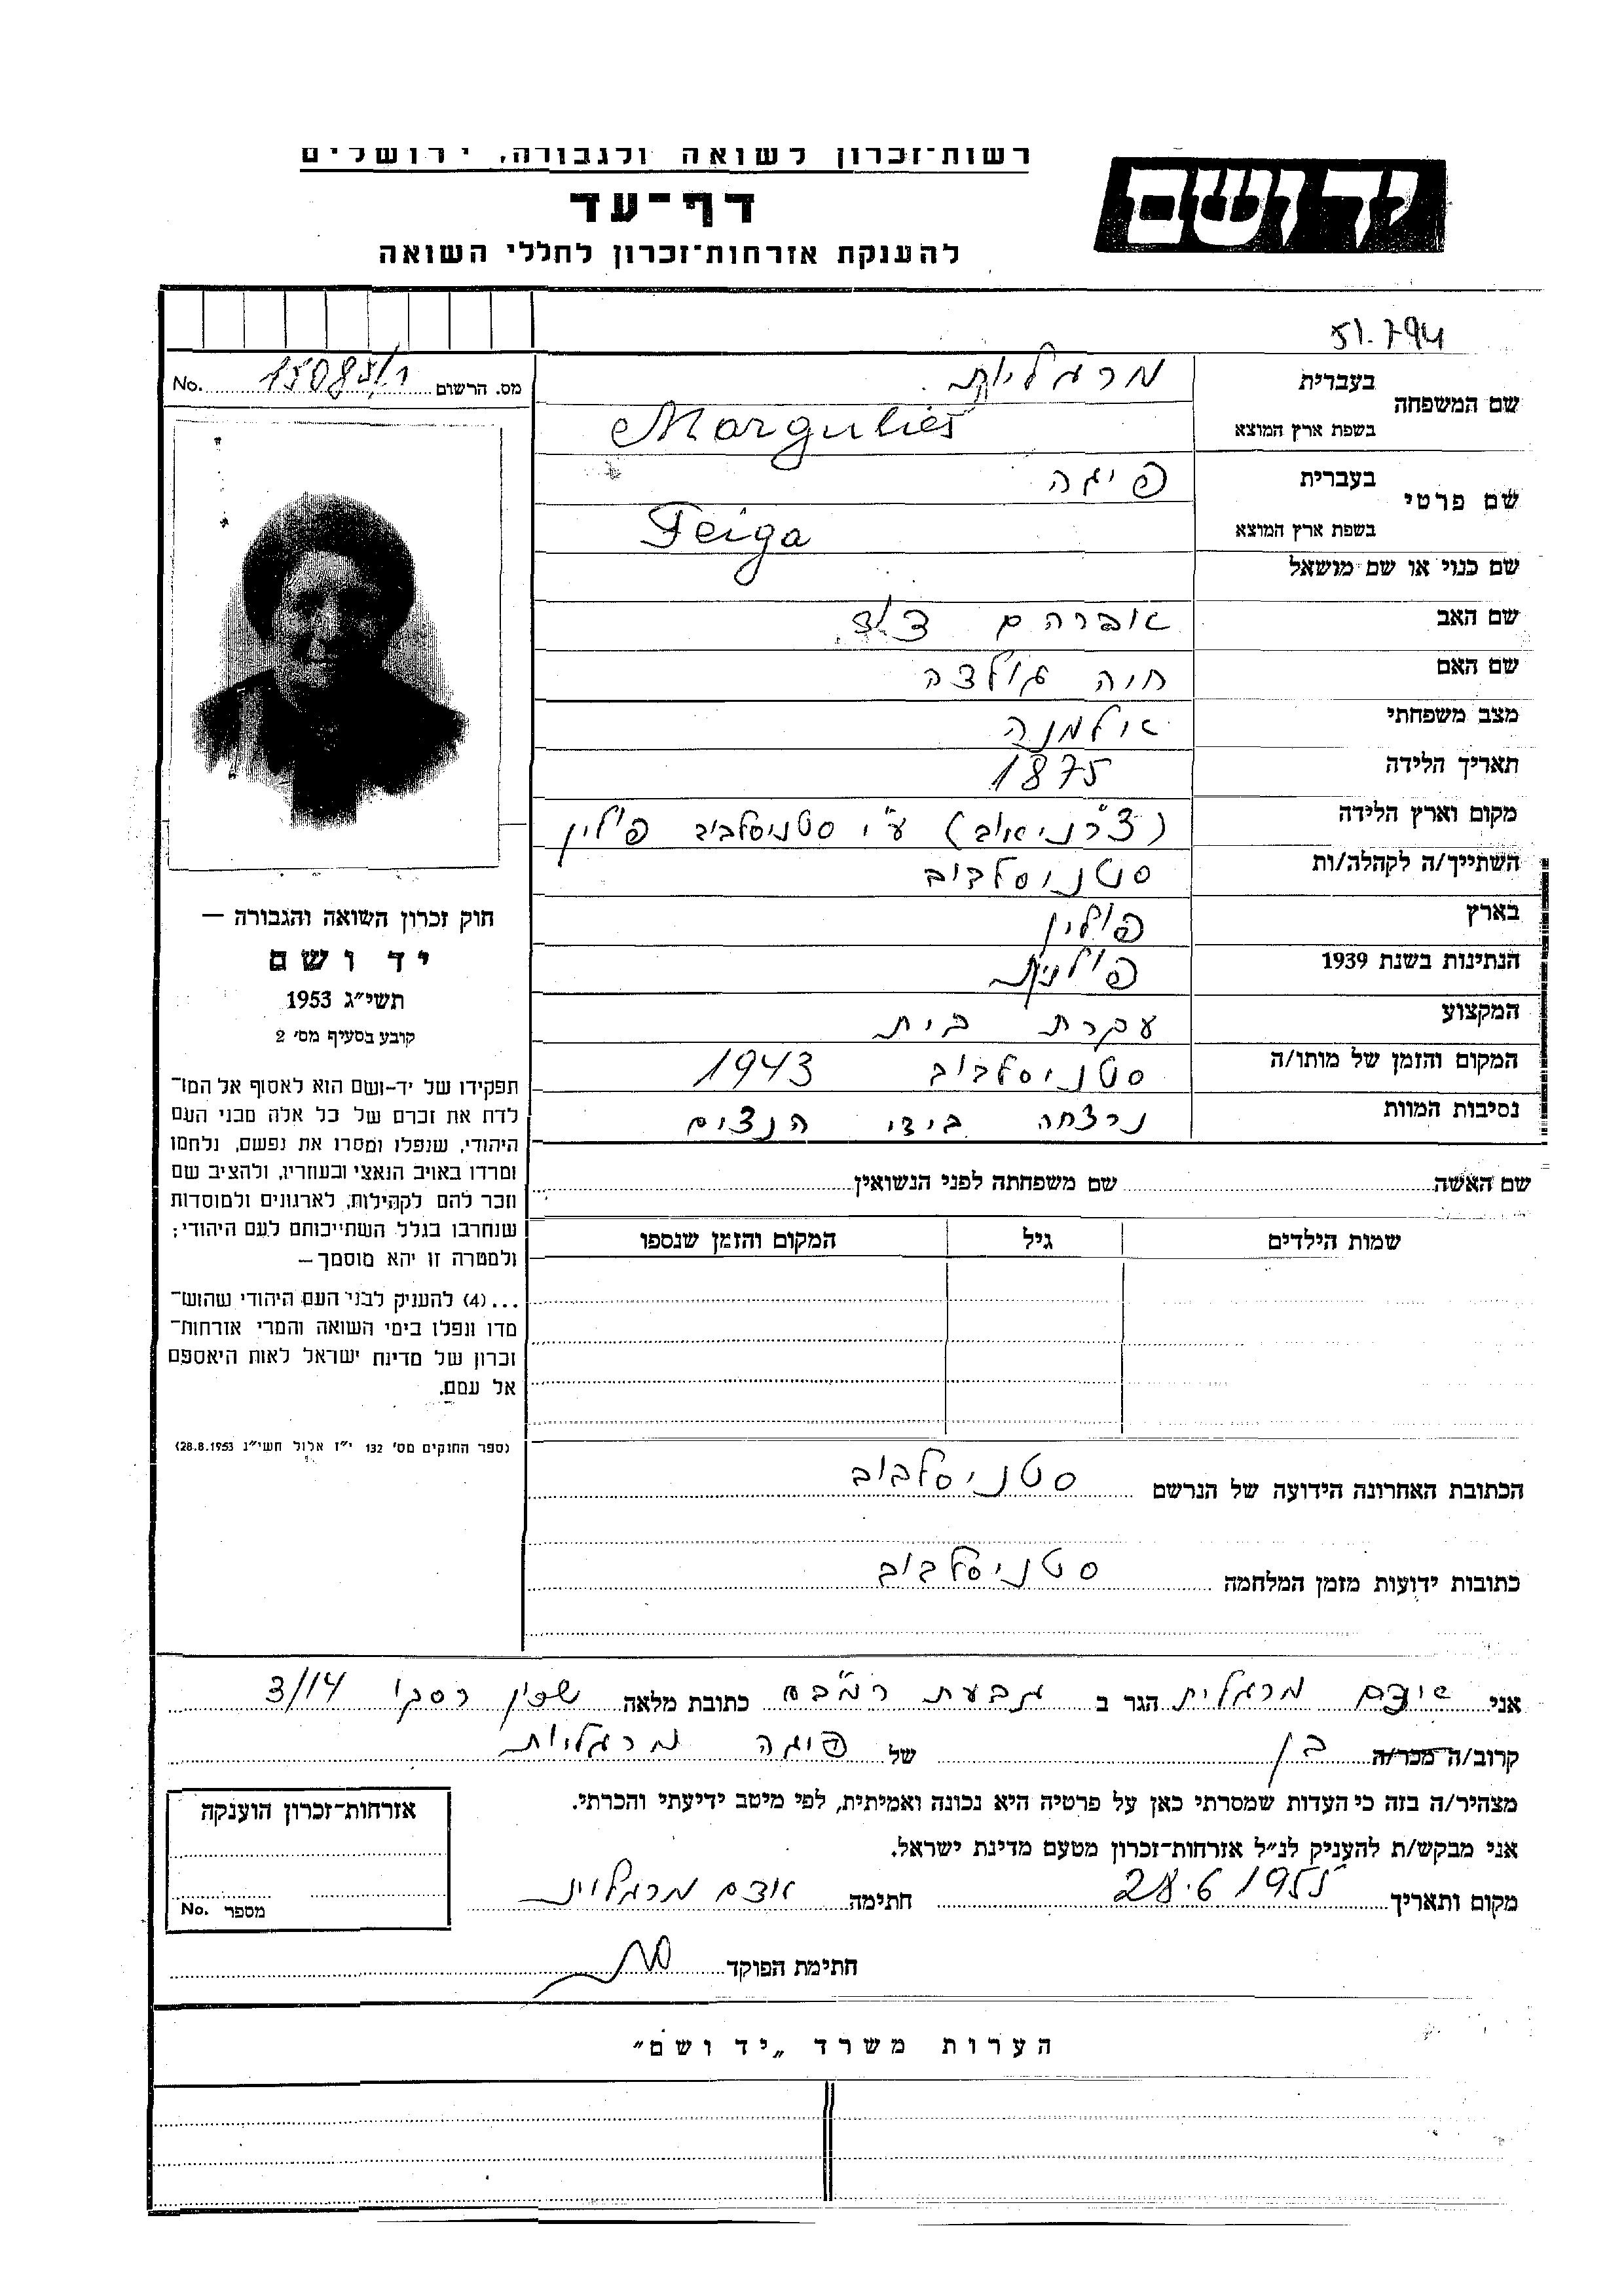 רשות־זכרון לשואה ולגבורה, ירושלים
יד ושם
דף־עד
להענקת אזרחות־זכרון לחללי השואה
51.794
מס. הרשום 15085/1 No.
שם המשפחה
בעברית מרגליות
בשפת ארץ המוצא Margulies
שם פרטי
בעברית פיגה
בשפת ארץ המוצא Feiga
שם כנוי או שם מושאל
שם האב אברהם
שם האם חיה גולדה
מצב משפחתי אלמנה
תאריך הלידה 1875
מקום וארץ הלידה ע"י סטניסלבוב פולין
השתייך/ה לקהלה/ות סטניסלבוב
בארץ פולין
הנתינות בשנת 1939 פולנית
המקצוע עקרת בית
המקום והזמן של מותו/ה סטניסלבוב 1943
נסיבות המוות נרצחה בידי הנצים
חוק זכרון השואה והגבורה —
יד ושם
תשי"ג 1953
קובע בסעיף מס' 2
תפקידו של יד-ושם הוא לאסוף אל המו־
לדת את זכרם של כל אלה מבני העם
היהודי, שנפלו ומסרו את נפשם, נלחמו
ומרדו באויב הנאצי ובעוזריו, ולהציב שם
וזכר להם לקהילות, לארגונים ולמוסדות
שנחרבו בגלל השתייכותם לעם היהודי;
ולמטרה זו יהא מוסמך —
...(4) להעניק לבני העם היהודי שהוש־
מדו ונפלו בימי השואה והמרי אזרחות־
זכרון של מדינת ישראל לאות היאספם
אל עמם.
(ספר החוקים מס' 132 י"ז אלול תשי"ג 28.8.1953)
שם האשה שם משפחתה לפני הנשואין
שמות הילדים גיל המקום והזמן שנספו
הכתובת האחרונה הידועה של הנרשם סטניסלבוב
כתובות ידועות מזמן המלחמה סטניסלבוב
אני מרגלית הגר ב גבעת רמב"ם כתובת מלאה שכון רסקו 3/14
קרוב/ה מכר/ה בן של פיגה מרגליות
מצהיר/ה בזה כי העדות שמסרתי כאן על פרטיה היא נכונה ואמיתית, לפי מיטב ידיעתי והכרתי.
אני מבקש/ת להעניק לנ"ל אזרחות־זכרון מטעם מדינת ישראל.
מקום ותאריך 28.6.1955 חתימה
חתימת הפוקד
אזרחות־זכרון הוענקה
מספר No.
הערות משרד „יד ושם"